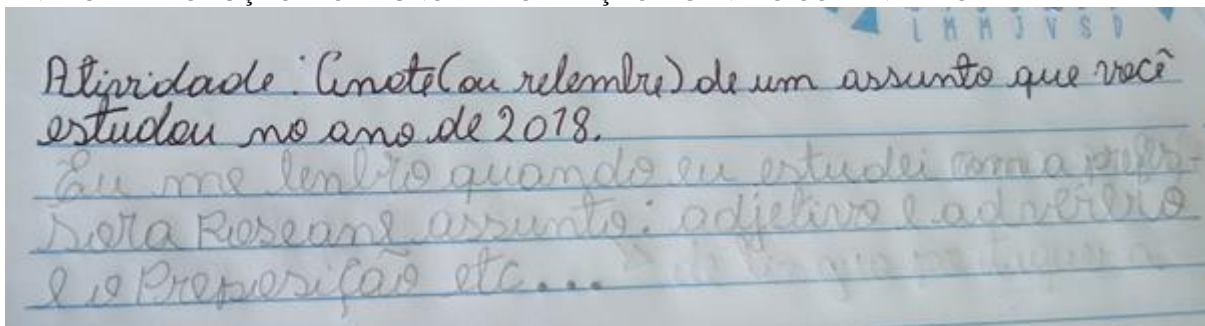 L M M J V S D
Atividade: Anote (ou relembre) de um assunto que você
estudou no ano de 2018.
Eu me lenbro quando eu estudei com a profes-
sora Roseane assunto: adjetivo e advérbio
e o Preposição etc... de língua portuguesa